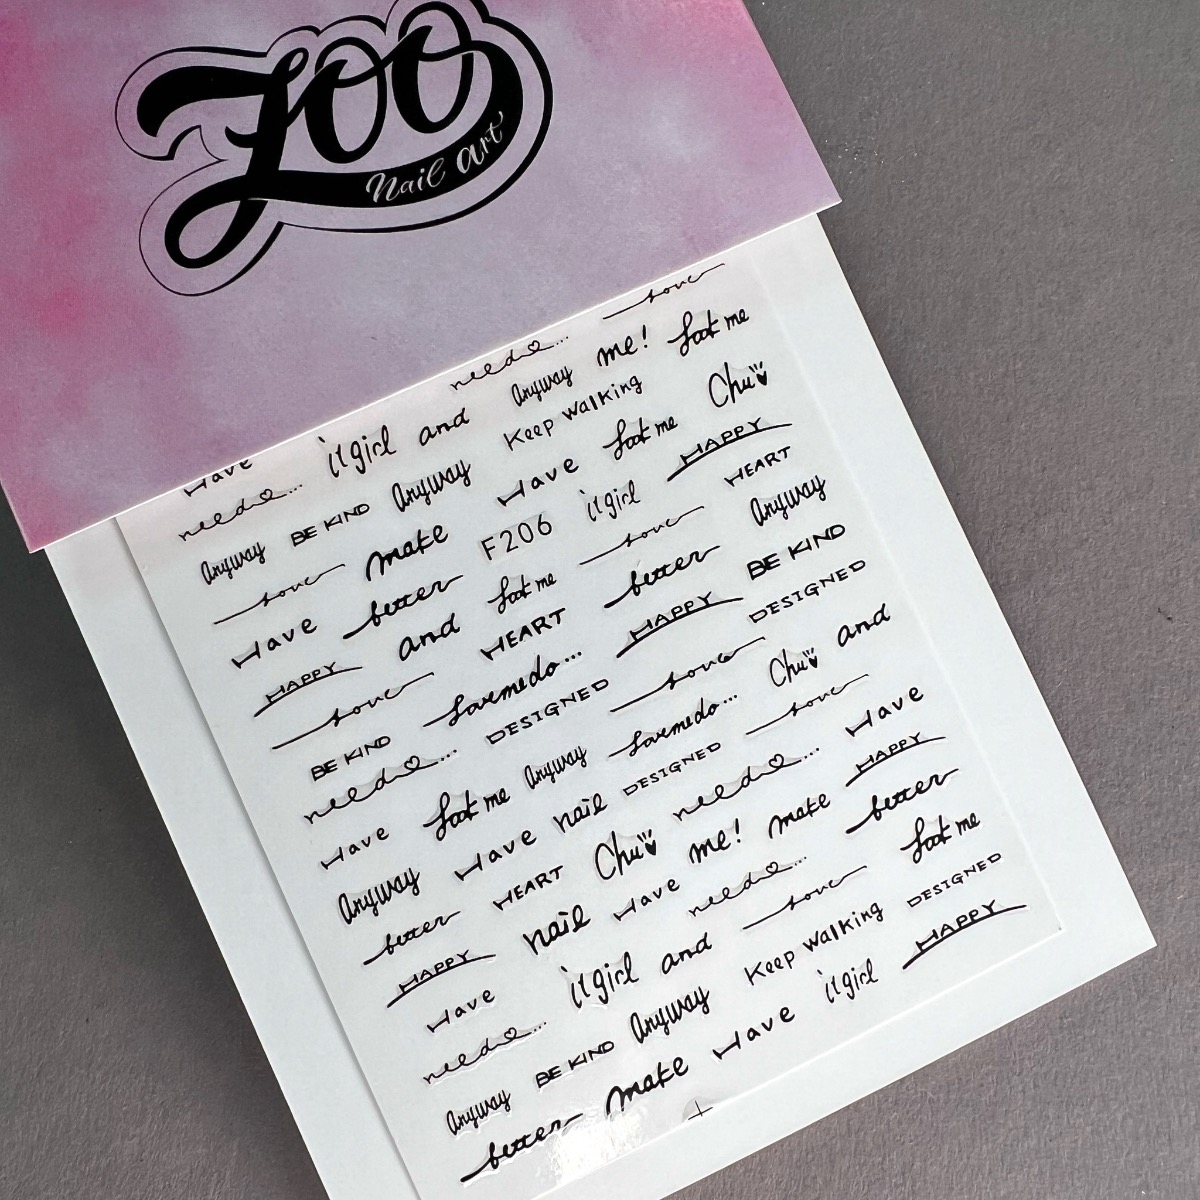 Zoo
Nail Art
need... love
Have it girl and Anyway me! Look me
need... Keep walking Chu
Anyway BE KIND Anyway Have Look me HAPPY
love make F206 it girl HEART
Have better Look me love Anyway
HAPPY and HEART better BE KIND
love Lovemedo... HAPPY DESIGNED
BE KIND DESIGNED love Chu and
need... Anyway Lovemedo... love
Have Look me DESIGNED Have
Anyway Have nail need... HAPPY
better HEART Chu me! make better
HAPPY nail Have need... Look me
Have it girl and love DESIGNED
need... Keep walking HAPPY
Anyway BE KIND Anyway Have it girl
better make